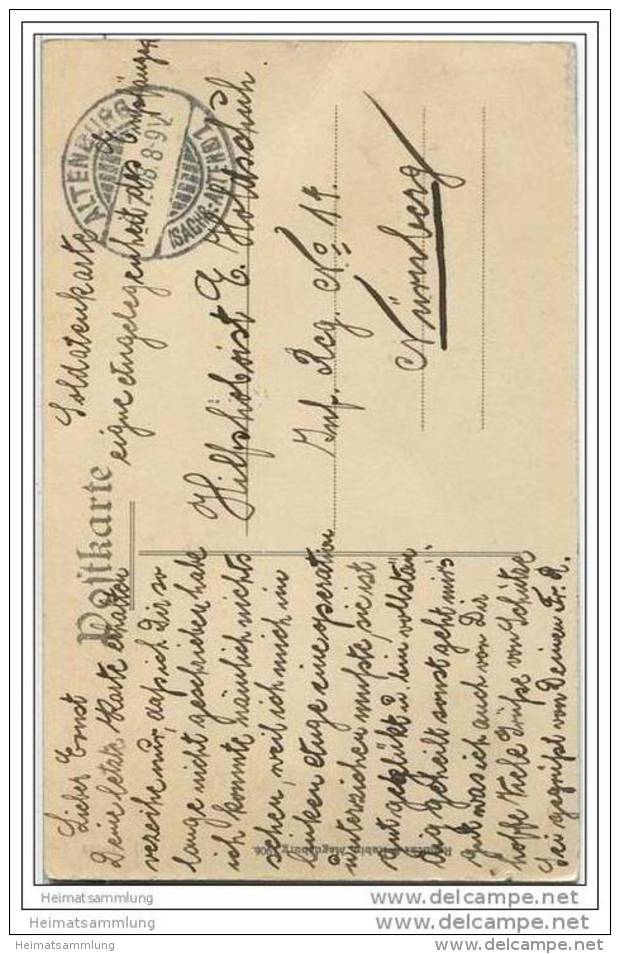 Postkarte
Soldatenkarte
eigne Angelegenheit des Empfängers
ALTENBURG
08. 8-9V.
(SACHS.-ALTENB.)
Hilfshoboist E.
Inf. Reg. No 14.
Nürnberg
Lieber Ernst
Deine letzte Karte erhalten
verzeihe nur, dass ich Dir so
lange nicht geschrieben habe
ich konnte nämlich nichts
sehen, weil ich mich im
linken Auge eine operation
unterziehen mußte, sie ist
gut geglükt u. bin vollstän
dig geheilt sonst geht mirs
gut was ich auch von Dir
hoffe Viele Grüße von
Sei gegrüßt von Deinen Fr. R.
Magdeburg 1906
Heimatsammlung
Heimatsammlung
Heimatsammlung
www.delcampe.net
www.delcampe.net
www.delcampe.net